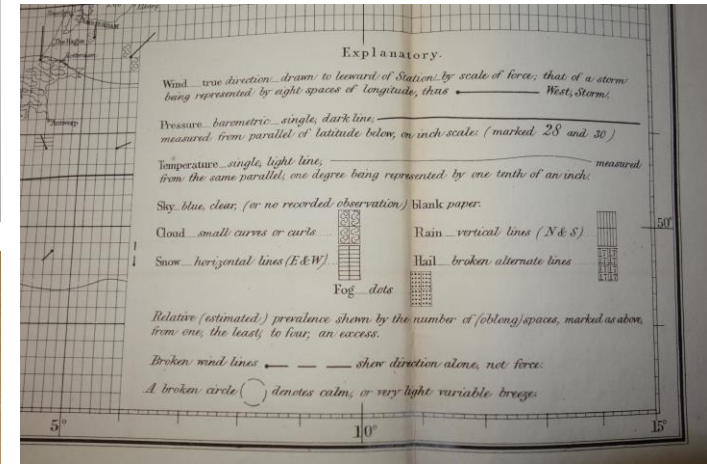 The Hague
Antwerp
Explanatory.
Wind true direction drawn to leeward of Station by scale of force; that of a storm
being represented by eight spaces of longitude, thus West, Storm.
Pressure barometric single, dark line,
measured from parallel of latitude below, on inch scale: (marked 28 and 30)
Temperature single, light line, measured
from the same parallel, one degree being represented by one tenth of an inch.
Sky blue, clear, (or no recorded observation) blank paper.
Cloud small curves or curls Rain vertical lines (N & S)
Snow horizontal lines (E & W) Hail broken alternate lines
Fog dots
Relative (estimated) prevalence shewn by the number of (oblong) spaces, marked as above,
from one, the least, to four, an excess.
Broken wind lines shew direction alone, not force.
A broken circle ( ) denotes calm, or very light variable breeze.
50°
5° 10° 15°